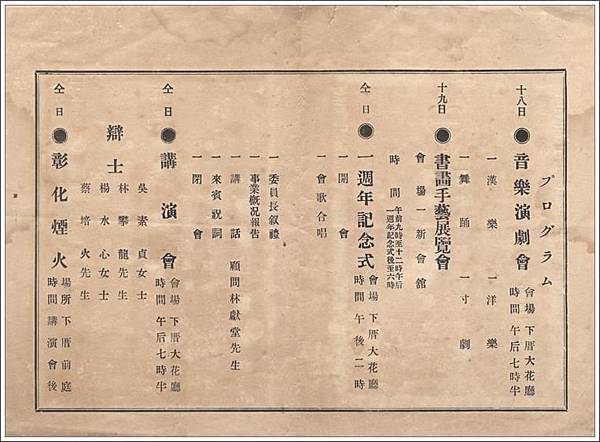 プログラム
十八日 ● 音樂演劇會 會場 下厝大花廳
時間 午后七時半
一漢樂 一洋樂
一舞踊 一寸劇
十九日 ● 書畫手藝展覽會
會場 一新會館
時間 午前九時至十二時午后
一週年記念式後至六時
仝日 ● 一週年記念式 會場 下厝大花廳
時間 午後二時
一開會
一會歌合唱
一委員長叙禮
一事業概況報告
一講話 顧問林獻堂先生
一來賓祝詞
一閉會
仝日 ● 講演會 會場 下厝大花廳
時間 午后七時半
辯士
吳素貞女士
林攀龍先生
楊水心女士
蔡培火先生
仝日 ● 彰化煙火 場所 下厝前庭
時間 講演會後